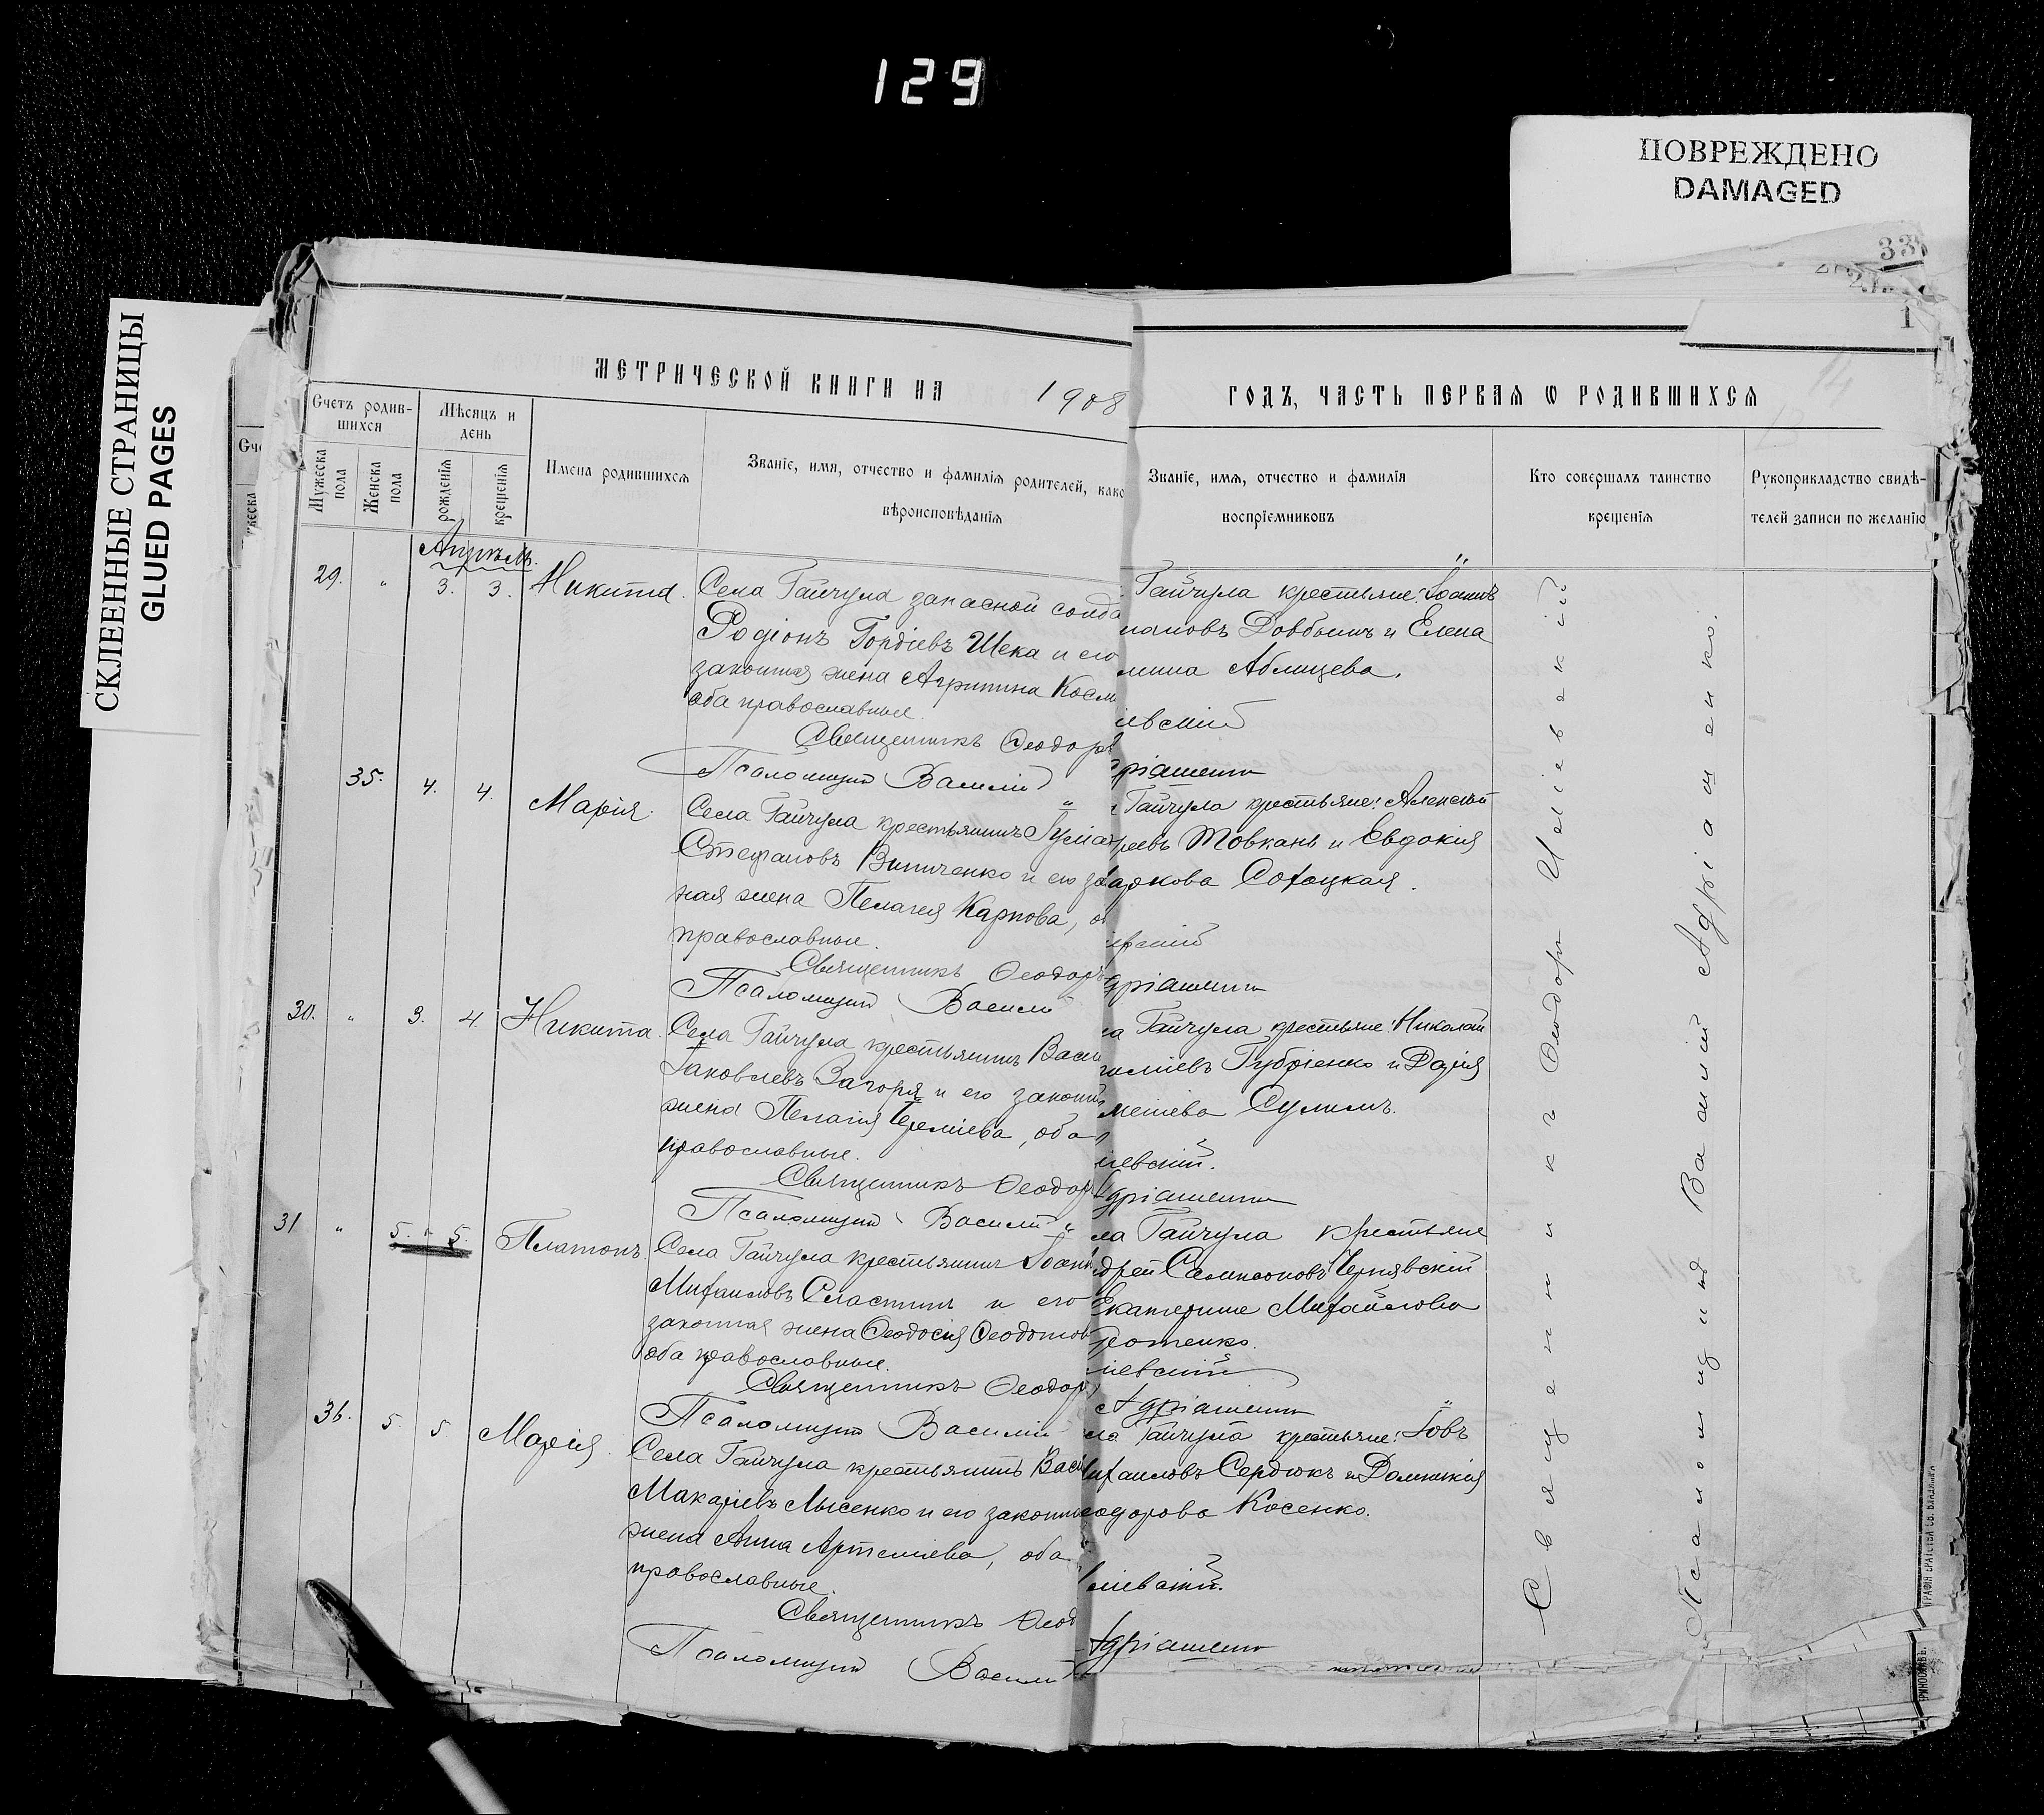 129
ПОВРЕЖДЕНО
DAMAGED
СКЛЕЕННЫЕ СТРАНИЦЫ
GLUED PAGES
33
1
МЕТРИЧЕСКОЙ КНИГИ НА 1908
ГОДЪ, ЧАСТЬ ПЕРВАЯ Ѡ РОДИВШИХСЯ
Счетъ родив-
шихся
Мужеска пола
Женска пола
Мѣсяцъ и
день
рожденія
крещенія
Имена родившихся
Званіе, имя, отчество и фамилія родителей, како
вѣроисповѣданія
Званіе, имя, отчество и фамилія
воспріемниковъ
Кто совершалъ таинство
крещенія
Рукоприкладство свидѣ-
телей записи по желанію
Апрѣль.
29. " 3. 3. Никита.
Села Гайчула запасной солда
Родіонъ Гордіевъ Шека и его
законная жена Агрипина Косм
оба православные.
Священникъ Ѳеодоръ
Псаломщикъ Василій
Гайчула крестьяне: Іоаннъ
Довбышъ и Елена
мина Аблицева.
іевскій
дріашенко
35. 4. 4. Марія.
Села Гайчула крестьянинъ
Стефановъ Винниченко и его за
ная жена Пелагея Карпова, о
православные.
Священникъ Ѳеодоръ
Псаломщикъ Василій
Гайчула крестьяне: Алексѣй
реевъ Товкань и Евдокія
аркова Сохацкая.
іевскій
дріашенко
30. " 3. 4. Никита.
Села Гайчула крестьянинъ Васи
Іаковлевъ Загоря и его законн
жена Пелагія Іереміева, оба
православные.
Священникъ Ѳеодоръ
Псаломщикъ Василій
ла Гайчула крестьяне: Николай
Губріенко и Дарія
Сулимъ.
іевскій.
Адріашенко
31 " 5. " 5. Платонъ.
Села Гайчула крестьянинъ Іоанн
Михаиловъ Сластинъ и его
законная жена Ѳеодосія Ѳеодотов
оба православные.
Священникъ Ѳеодор
Псаломщикъ Василій
ла Гайчула крестьяне
дрей Сампсоновъ Чернявскій
Екатерине Михайлова
іевскій
Адріашенко
36. 5. 5 Марія.
Села Гайчула крестьянинъ Васи
Макаріевъ Лысенко и его законн
жена Анна Артеміева, оба
православные.
Священникъ Ѳеод
Псаломщикъ Василій
ла Гайчула крестьяне: Іовъ
ихаиловъ Сердюкъ и Домникія
еодорова Косенко.
іевскій.
Адріашенко
Священникъ Ѳеодоръ
Псаломщикъ Василій Адріашенко.